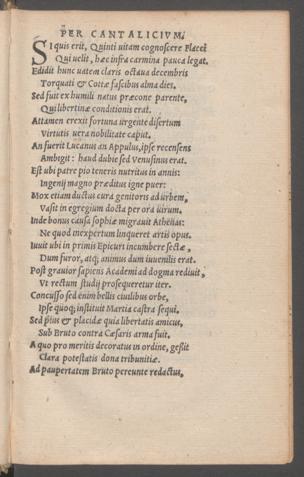 PER CANTALICIVM.
SI quis erit, Quinti uitam cognoscere Flacci
Qui uelit, hæc infra carmina pauca legat.
Edidit hunc uatem claris octaua decembris
Torquati & Cottæ fascibus alma dies.
Sed fuit ex humili natus præcone parente,
Qui libertinæ conditionis erat.
Attamen erexit fortuna urgente disertum
Virtutis uera nobilitate caput.
An fuerit Lucanus an Appulus, ipse recensens
Ambigit: haud dubie sed Venusinus erat.
Est ubi patre pio teneris nutritus in annis:
Ingenij magno præditus igne puer:
Mox etiam ductus cura genitoris ad urbem,
Vasit in egregium docta per ora uirum.
Inde bonas causa sophiæ migrauit Athenas:
Ne quod inexpertum linqueret artis opus.
Iuuit ubi in primis Epicuri incumbere sectæ,
Dum furor, atq; animus dum iuuenilis erat.
Post grauior sapiens Academi ad dogma rediuit,
Vt rectum studij prosequeretur iter.
Concusso sed enim bellis ciuilibus orbe,
Ipse quoq; instituit Martia castra sequi.
Sed pius & placidæ quia libertatis amicus,
Sub Bruto contra Cæsaris arma fuit.
A quo pro meritis decoratus in ordine, gessit
Clara potestatis dona tribunitiæ.
Ad paupertatem Bruto pereunte redactus,